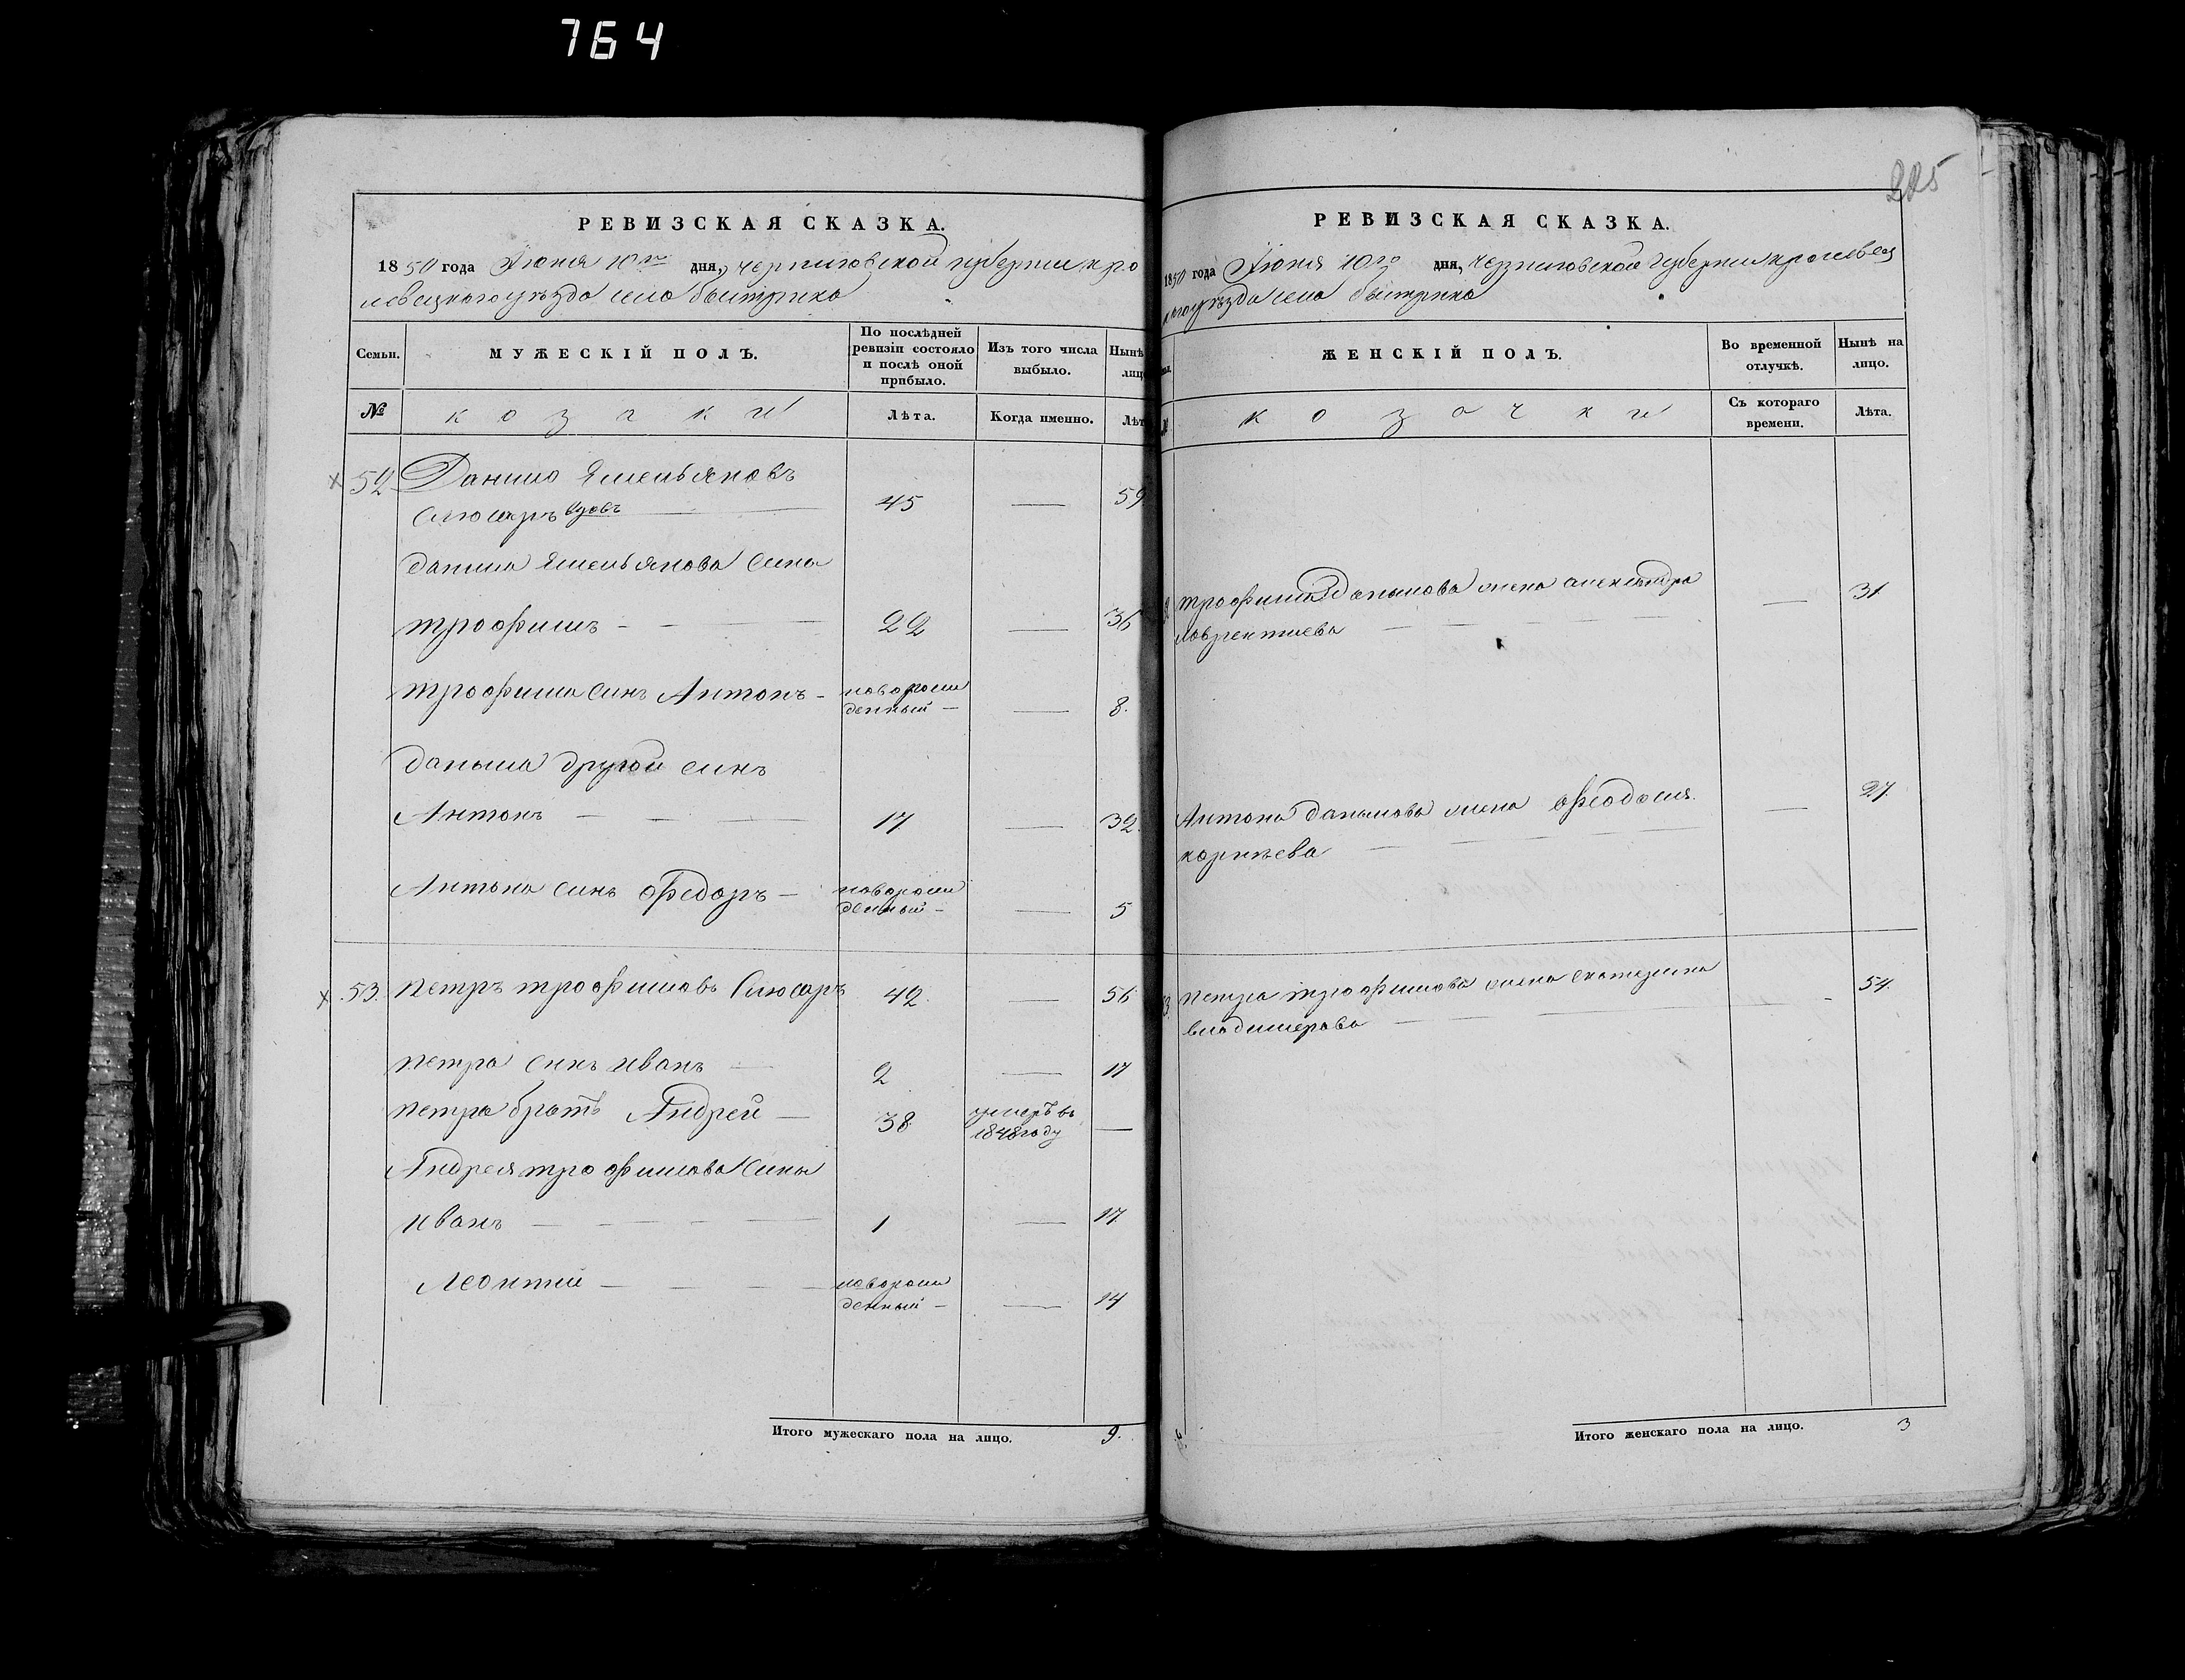 764
РЕВИЗСКАЯ СКАЗКА.
1850 года Июня 10го дня, Черниговской губернии кро
левецкого уѣзда села быстрика
Семьи.
МУЖЕСКІЙ ПОЛЪ.
По послѣдней ревизіи состояло и послѣ оной прибыло.
Изъ того числа выбыло.
Нынѣ
лицо
№
козаки
Лѣта.
Когда именно.
Лѣт
52 Данило Емельяновъ
Слюсарь вдовъ — 45 — 59.
данила Емельянова сины
трофимъ — 22 — 36
трофима синъ Антонъ — новорож
денный — — 8.
данила другой синъ
Антонъ — 17 — 32.
Антона синъ Федоръ — новорож
денный — — 5
53. петръ трофимовъ Слюсарь 42. — 56
петра синъ иванъ — 2 — 17
петра братъ Андрей — 38 умеръ въ
1848 году —
Андрея трофимова сины
иванъ — 1 — 17.
леонтий — новорож
денный — — 14
Итого мужескаго пола на лицо. 9.
225
РЕВИЗСКАЯ СКАЗКА.
1850 года Июня 10го дня, Черниговской Губернии кролевец
кого уѣзда села быстрика
ЖЕНСКІЙ ПОЛЪ.
Во временной отлучкѣ.
Нынѣ на лицо.
№
козачки
Съ котораго времени.
Лѣта.
трофима данилова жена александра — 31
лаврентиева
Антона данилова жена Феодосия — 27.
корнѣева
петра трофимова жена екатерина — 54.
владимерова
Итого женскаго пола на лицо. 3